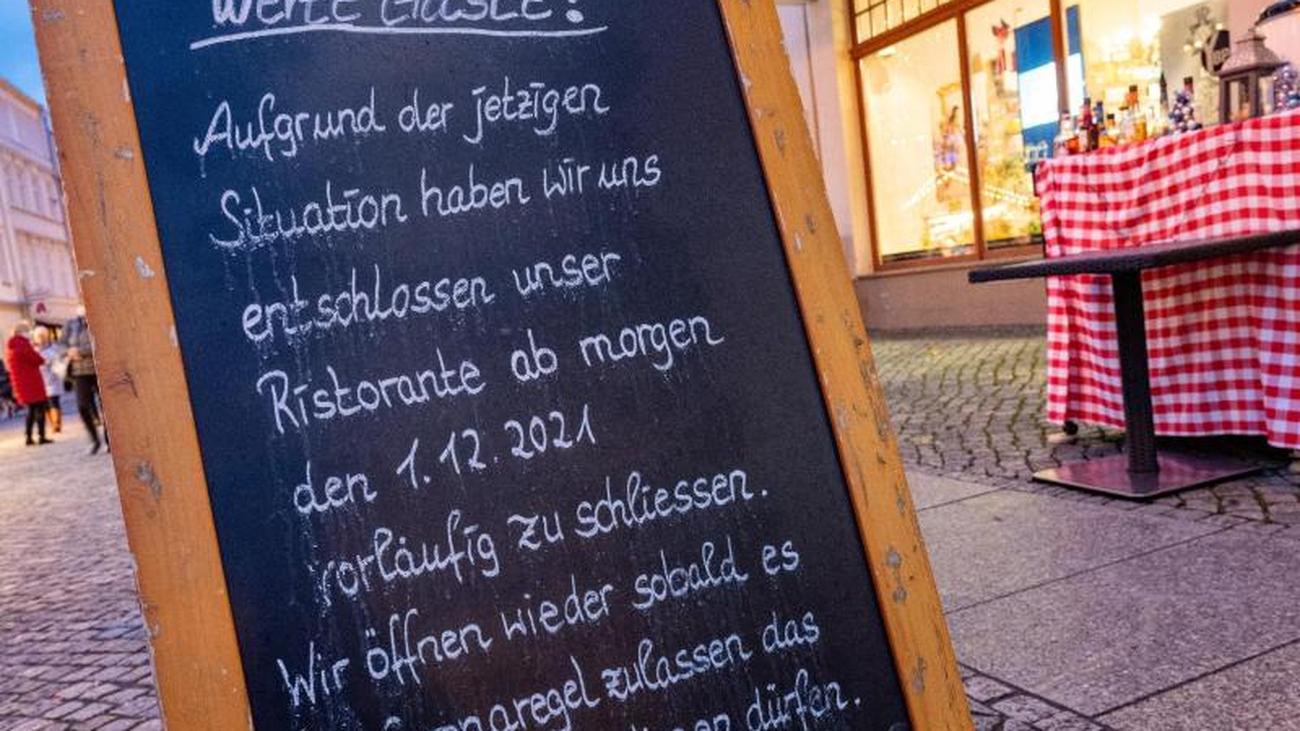 Werte Gäste!
Aufgrund der jetzigen
Situation haben wir uns
entschlossen unser
Ristorante ab morgen
den 1.12.2021
vorläufig zu schliessen.
Wir öffnen wieder sobald es
zulassen das
dürfen.